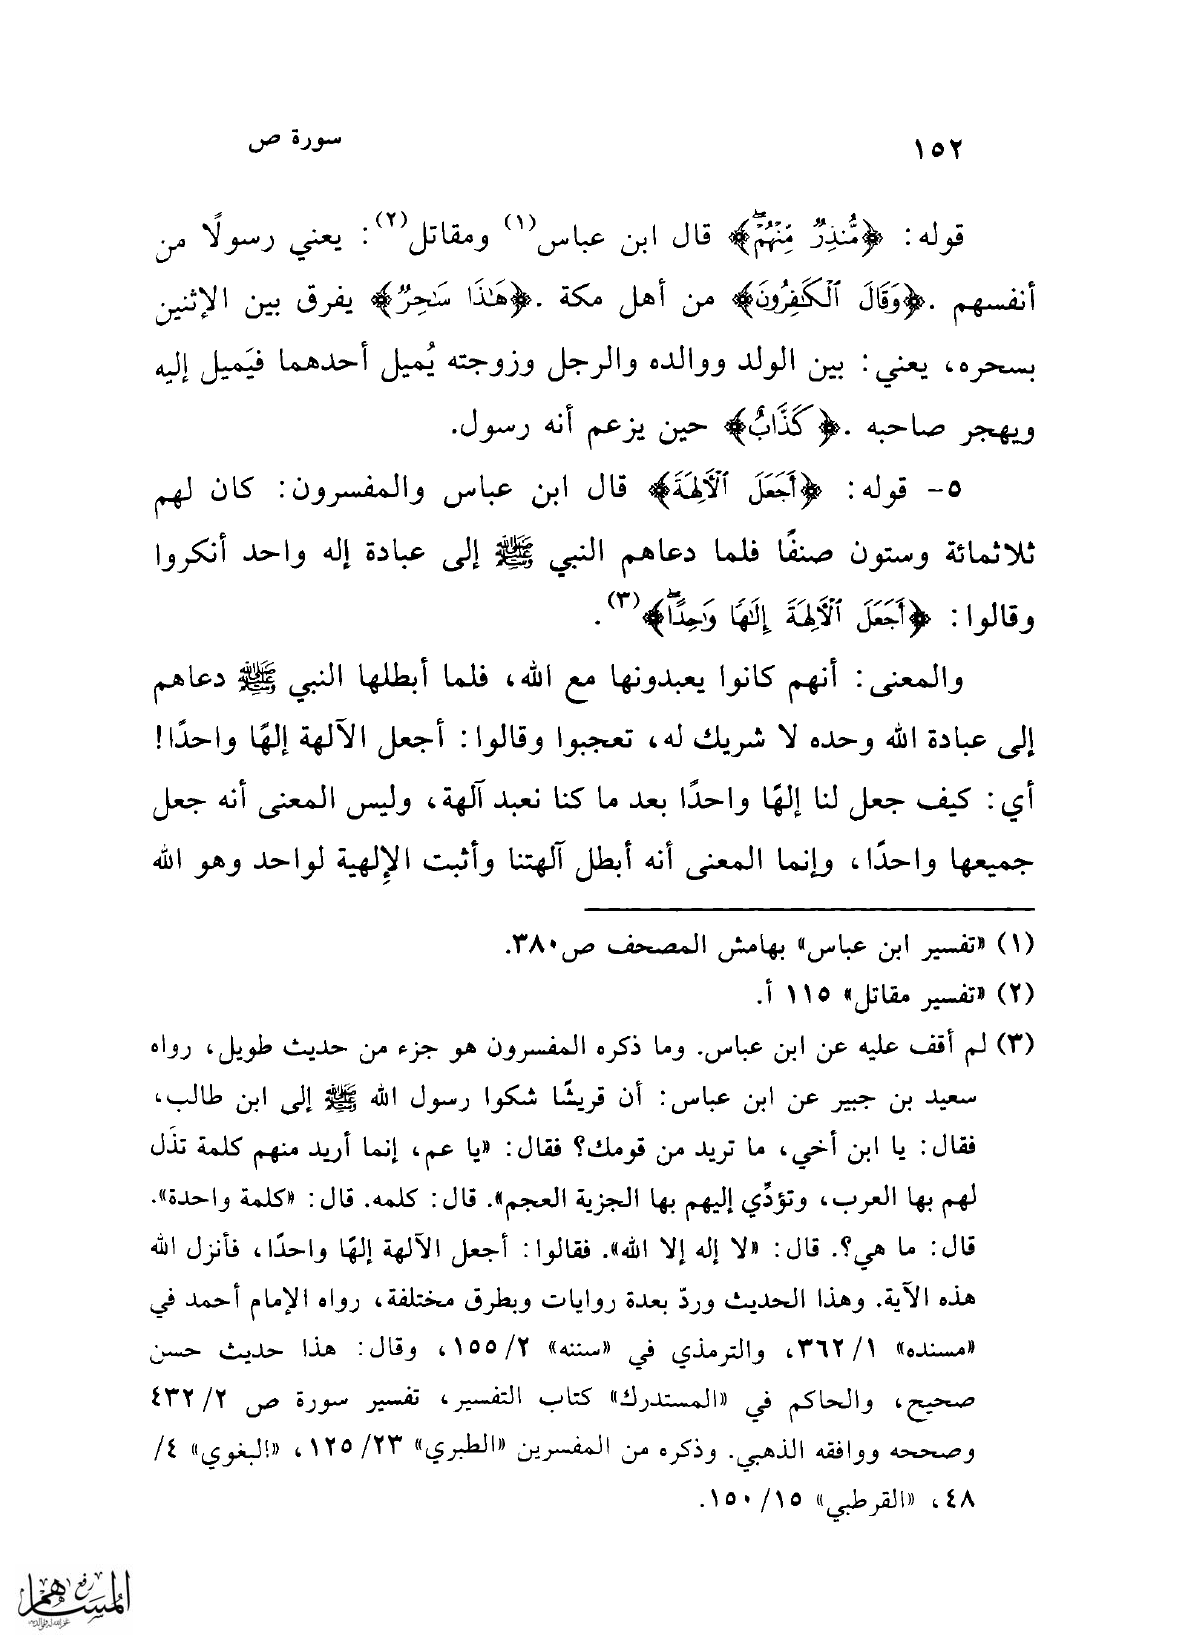 ١٥٢ سورة ص
قوله: ﴿مُّنذِرٌ مِّنْهُمْ ۖ﴾ قال ابن عباس(١) ومقاتل(٢): يعني رسولًا من
أنفسهم .﴿وَقَالَ ٱلْكَٰفِرُونَ﴾ من أهل مكة .﴿هَٰذَا سَٰحِرٌ﴾ يفرق بين الإثنين
بسحره، يعني: بين الولد ووالده والرجل وزوجته يُميل أحدهما فيَميل إليه
ويهجر صاحبه .﴿كَذَّابٌ﴾ حين يزعم أنه رسول.
٥- قوله: ﴿أَجَعَلَ ٱلْأَلِهَةَ﴾ قال ابن عباس والمفسرون: كان لهم
ثلاثمائة وستون صنفًا فلما دعاهم النبي ﷺ إلى عبادة إله واحد أنكروا
وقالوا: ﴿أَجَعَلَ ٱلْأَلِهَةَ إِلَٰهًا وَٰحِدًا ۖ﴾(٣).
والمعنى: أنهم كانوا يعبدونها مع الله، فلما أبطلها النبي ﷺ دعاهم
إلى عبادة الله وحده لا شريك له، تعجبوا وقالوا: أجعل الآلهة إلهًا واحدًا!
أي: كيف جعل لنا إلهًا واحدًا بعد ما كنا نعبد آلهة، وليس المعنى أنه جعل
جميعها واحدًا، وإنما المعنى أنه أبطل آلهتنا وأثبت الإِلهية لواحد وهو الله
(١) «تفسير ابن عباس» بهامش المصحف ص٣٨٠.
(٢) «تفسير مقاتل» ١١٥ أ.
(٣) لم أقف عليه عن ابن عباس. وما ذكره المفسرون هو جزء من حديث طويل، رواه
سعيد بن جبير عن ابن عباس: أن قريشًا شكوا رسول الله ﷺ إلى ابن طالب،
فقال: يا ابن أخي، ما تريد من قومك؟ فقال: «يا عم، إنما أريد منهم كلمة تذَل
لهم بها العرب، وتؤدِّي إليهم بها الجزية العجم». قال: كلمه. قال: «كلمة واحدة».
قال: ما هي؟. قال: «لا إله إلا الله». فقالوا: أجعل الآلهة إلهًا واحدًا، فأنزل الله
هذه الآية. وهذا الحديث وردّ بعدة روايات وبطرق مختلفة، رواه الإمام أحمد في
«مسنده» ١/ ٣٦٢، والترمذي في «سننه» ٢/ ١٥٥، وقال: هذا حديث حسن
صحيح، والحاكم في «المستدرك» كتاب التفسير، تفسير سورة ص ٢/ ٤٣٢
وصححه ووافقه الذهبي. وذكره من المفسرين «الطبري» ٢٣/ ١٢٥، «البغوي» ٤/
٤٨، «القرطبي» ١٥/ ١٥٠.
رفع
المساهم